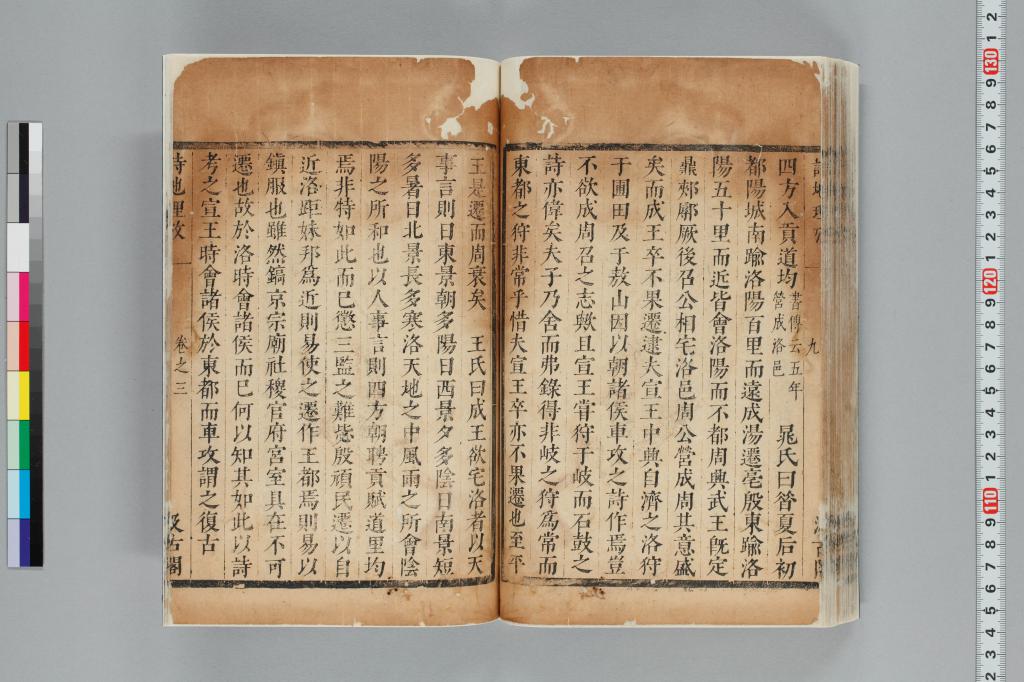 四方入貢道均書傳云五年營成洛邑 晁氏曰昝夏后初
都陽城南踰洛陽百里而遠成湯遷亳殷東踰洛
陽五十里而近皆會洛陽而不都周興武王旣定
鼎郟鄏厥後召公相宅洛邑周公營成周其意盛
矣而成王卒不果遷逮夫宣王中興自濟之洛狩
于圃田及于敖山因以朝諸侯車攻之詩作焉豈
不欲成周召之志歟且宣王甞狩于岐而石鼓之
詩亦偉矣夫子乃舍而弗錄得非岐之狩爲常而
東都之狩非常乎惜夫宣王卒亦不果遷也至平
王是遷而周衰矣 王氏曰成王欲宅洛者以天
事言則日東景朝多陽日西景夕多陰日南景短
多暑日北景長多寒洛天地之中風雨之所會陰
陽之所和也以人事言則四方朝聘貢賦道里均
焉非特如此而已懲三監之難毖殷頑民遷以自
近洛距妹邦爲近則易使之遷作王都焉則易以
鎭服也雖然鎬京宗廟社稷官府宮室具在不可
遷也故於洛時會諸侯而已何以知其如此以詩
考之宣王時會諸侯於東都而車攻謂之復古
詩地理攷 卷之三 汲古閣
九